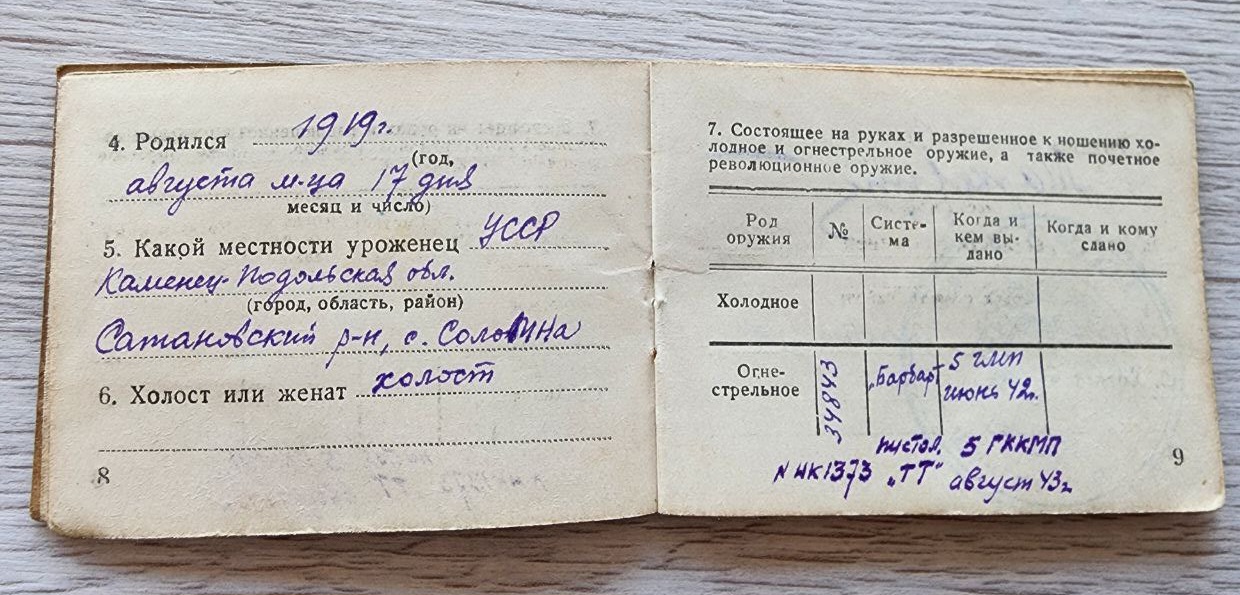 4. Родился 1919г.
(год,
августа м-ца 17 дня
месяц и число)
5. Какой местности уроженец УССР
Каменец-Подольская обл.
(город, область, район)
Сатановский р-н, с.
6. Холост или женат холост
8
7. Состоящее на руках и разрешенное к ношению хо-
лодное и огнестрельное оружие, а также почетное
революционное оружие.
Род оружия № Систе-ма Когда и кем вы-дано Когда и кому сдано
Холодное
Огне-стрельное 34843 „Барбар" 5 июнь 42г.
пистол. 5 ГККМП
N НК1373 „ТТ" август 43г
9